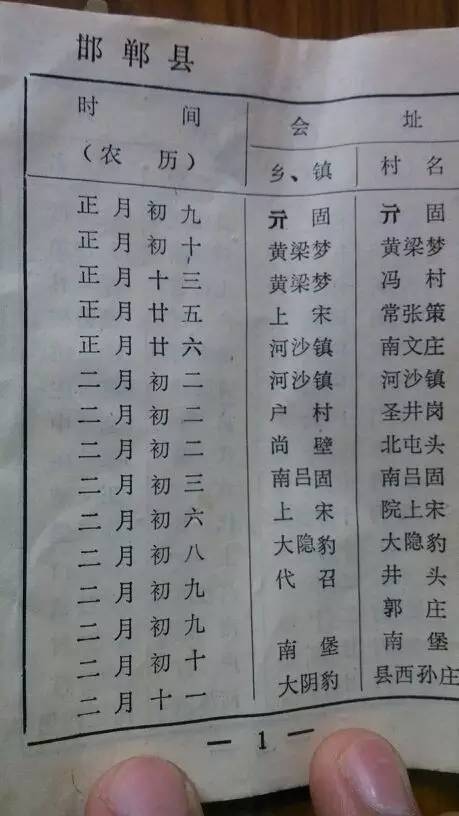 邯郸县
时间 会址
（农历） 乡、镇 村名
正月初九 亓固 亓固
正月初十 黄梁梦 黄梁梦
正月十三 黄梁梦 冯村
正月廿五 上宋 常张策
正月廿六 河沙镇 南文庄
二月初二 河沙镇 河沙镇
二月初二 户村 圣井岗
二月初二 尚壁 北屯头
二月初三 南吕固 南吕固
二月初六 上宋 院上宋
二月初八 大隐豹 大隐豹
二月初九 代召 井头
二月初九 郭庄
二月初十 南堡 南堡
二月十一 大阴豹 县西孙庄
— 1 —